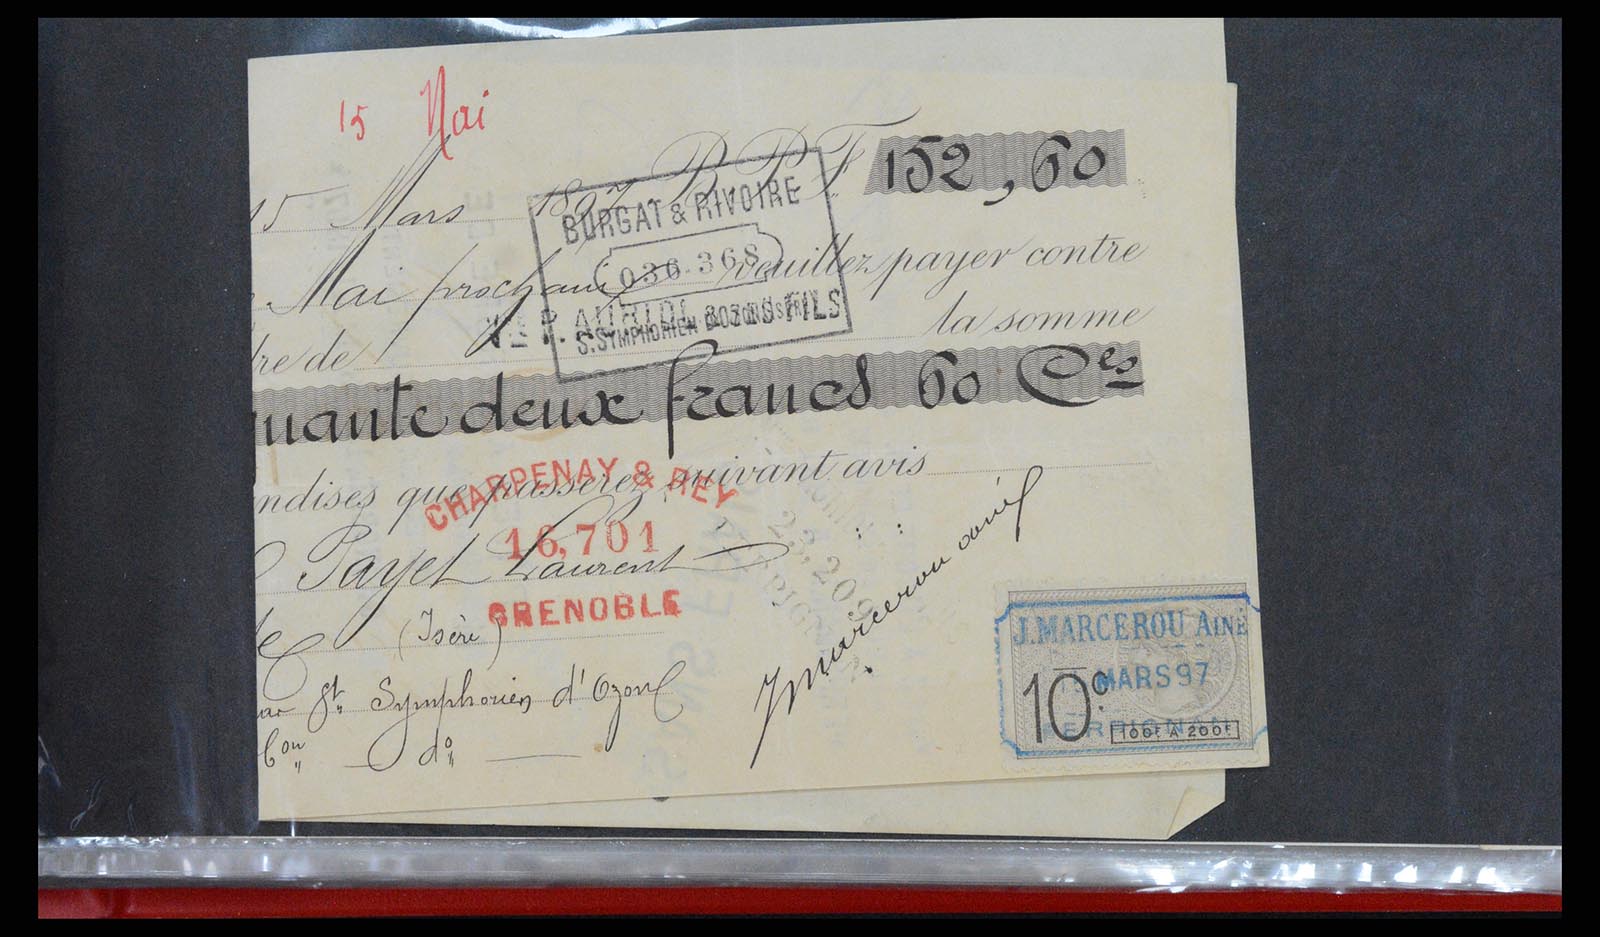 15 Mai
15 Mars 1897 B.P.F. 152,60
BURGAT & RIVOIRE
036.368
S. SYMPHORIEN D'OZON (ISÈRE)
Mai prochain veuillez payer contre
P. AURIOL & ses FILS
dre de la somme
quante deux francs 60 Ces
ndises que passerez suivant avis
CHARPENAY & REY
16,701
GRENOBLE
23,209
Payet Laurent
(Isère)
J Marcerou ainé
par St Symphorien d'Ozon
con do
J. MARCEROU AINÉ
MARS 97
PERPIGNAN
10c.
100F À 200F